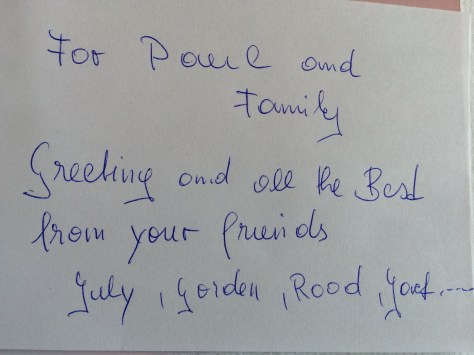 For Paul and
Family
Greeting and all the Best
from your friends
July, Gorden, Rood,